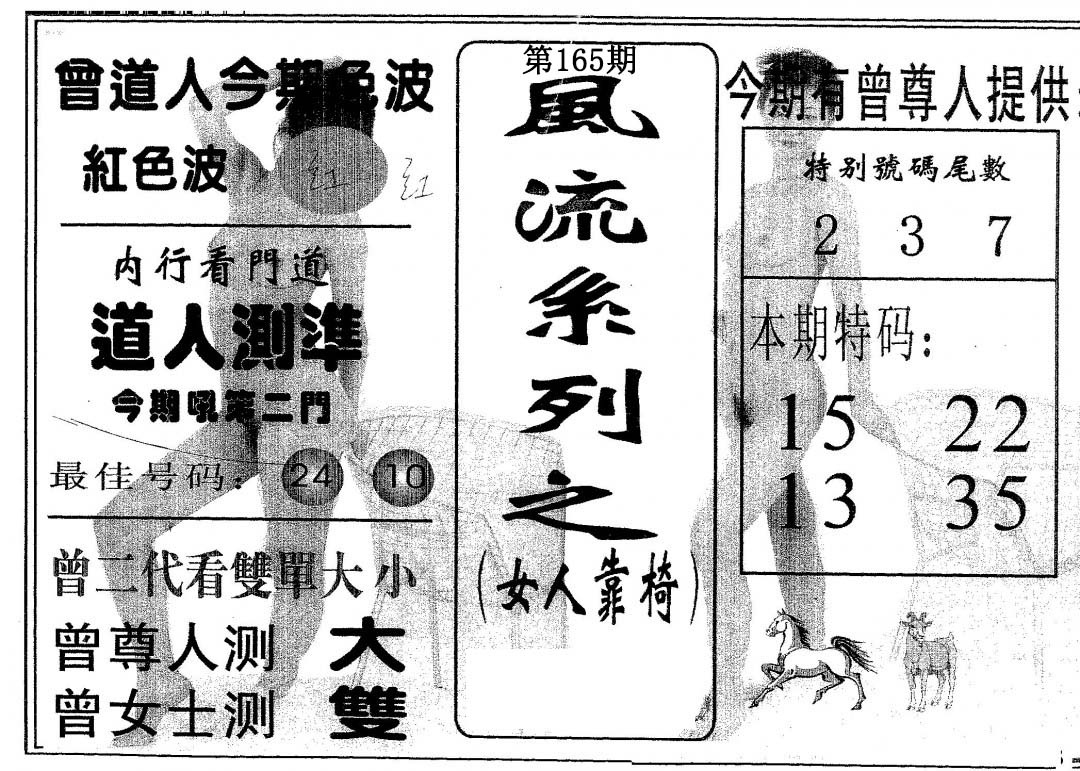 曾道人今期色波
紅色波 紅 红
内行看門道
道人測準
今期吼第二門
最佳号码： 24 10
曾二代看雙單大小
曾尊人测 大
曾女士测 雙
第165期
風流系列之
（女人靠椅）
今期有曾尊人提供：
特别號碼尾數
2 3 7
本期特码：
15 22
13 35